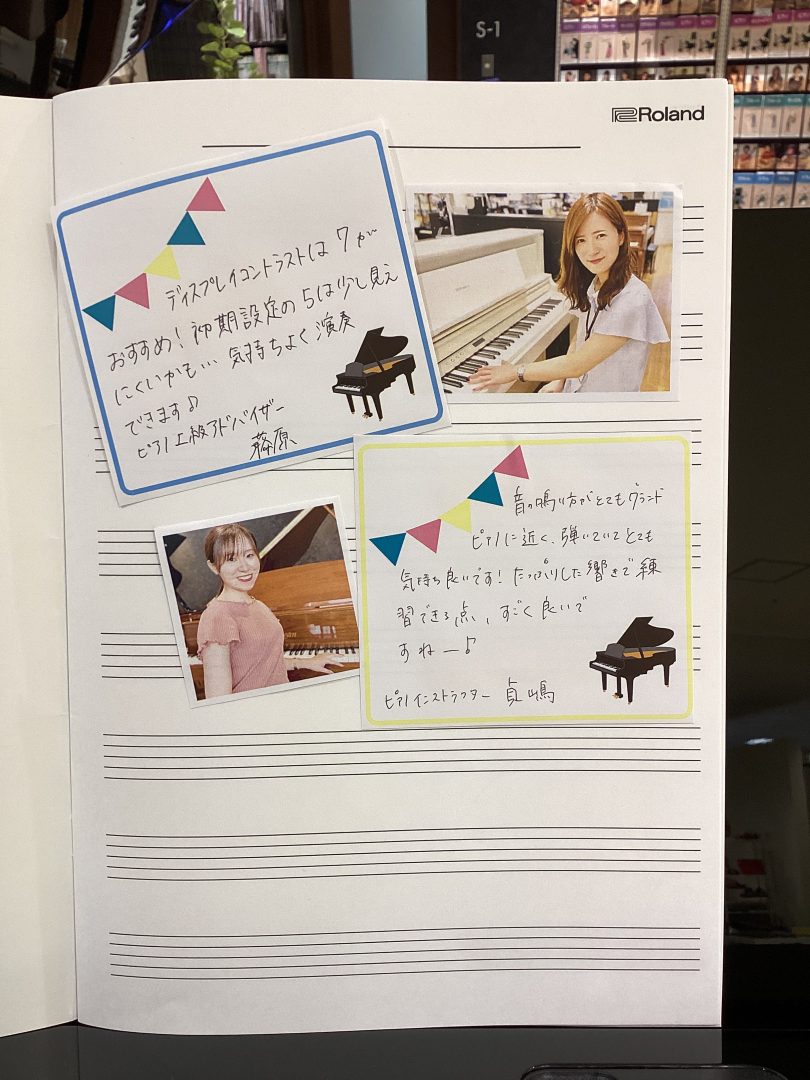 S-1
Roland
ディスプレイコントラストは 7 が
おすすめ！初期設定の 5は少し見え
にくいかも… 気持ちよく演奏
できます♪
ピアノ上級アドバイザー
藤原
音の鳴り方がとてもグランド
ピアノに近く、弾いていてとても
気持ち良いです！たっぷりした響きで練
習できる点、すごく良いで
すねー♪
ピアノインストラクター 貞嶋